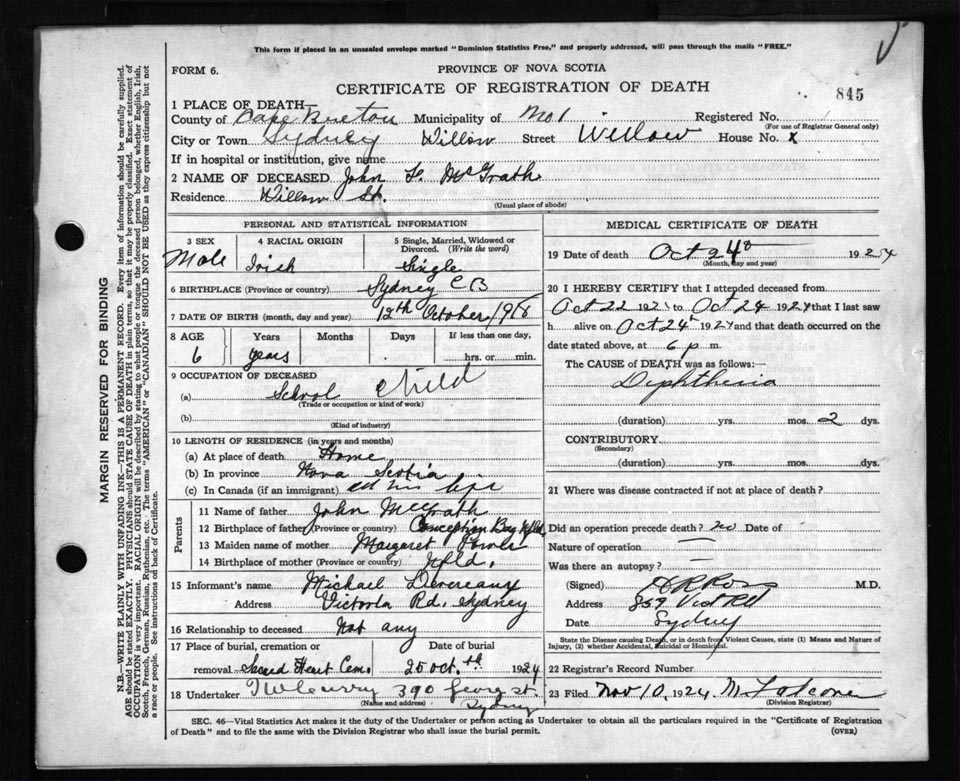 This form if placed in an unsealed envelope marked "Dominion Statistics Free," and properly addressed, will pass through the mails "FREE."
FORM 6.
PROVINCE OF NOVA SCOTIA
CERTIFICATE OF REGISTRATION OF DEATH
845
1 PLACE OF DEATH—
County of Cape Breton Municipality of No 1 Registered No.
(For use of Registrar General only)
City or Town Sydney Willow Street Willow House No. X
If in hospital or institution, give name
2 NAME OF DECEASED John F. McGrath
Residence Willow St.
(Usual place of abode)
PERSONAL AND STATISTICAL INFORMATION
3 SEX 4 RACIAL ORIGIN 5 Single, Married, Widowed or Divorced. (Write the word)
Male Irish Single
6 BIRTHPLACE (Province or country) Sydney C B
7 DATE OF BIRTH (month, day and year) 12th October 1918
8 AGE Years Months Days If less than one day,
6 years hrs. or min.
9 OCCUPATION OF DECEASED
(a) School Child
(Trade or occupation or kind of work)
(b)
(Kind of industry)
10 LENGTH OF RESIDENCE (in years and months)
(a) At place of death Home
(b) In province Nova Scotia
(c) In Canada (if an immigrant) all his life
Parents
11 Name of father John McGrath
12 Birthplace of father (Province or country) Conception Bay Nfld.
13 Maiden name of mother Margaret Power
14 Birthplace of mother (Province or country) Nfld.
15 Informant's name Michael Devereaux
Address Victoria Rd. Sydney
16 Relationship to deceased Not any
17 Place of burial, cremation or Date of burial
removal Sacred Heart Cem. 25 Oct. th 1924
18 Undertaker 390 George St.
(Name and address) Sydney
MEDICAL CERTIFICATE OF DEATH
19 Date of death Oct 24 1924
(Month, day and year)
20 I HEREBY CERTIFY that I attended deceased from
Oct 22 1924 to Oct 24 1924 that I last saw
h alive on Oct 24 1924 and that death occurred on the
date stated above, at 6 p m.
The CAUSE of DEATH was as follows:—
Diphtheria
(duration) yrs. mos. 2 dys.
CONTRIBUTORY
(Secondary)
(duration) yrs. mos. dys.
21 Where was disease contracted if not at place of death?
Did an operation precede death? no Date of
Nature of operation —
Was there an autopsy? —
(Signed) Ross M.D.
Address 259 Vict Rd
Date Sydney
State the Disease causing Death, or in death from Violent Causes, state (1) Means and Nature of Injury, (2) whether Accidental, Suicidal or Homicidal.
22 Registrar's Record Number
23 Filed Nov 10, 1924 M Falconer
(Division Registrar)
SEC. 46—Vital Statistics Act makes it the duty of the Undertaker or person acting as Undertaker to obtain all the particulars required in the "Certificate of Registration
of Death" and to file the same with the Division Registrar who shall issue the burial permit. (OVER)
MARGIN RESERVED FOR BINDING
N.B.—WRITE PLAINLY WITH UNFADING INK—THIS IS A PERMANENT RECORD. Every item of information should be carefully supplied.
AGE should be stated EXACTLY. PHYSICIANS should STATE CAUSE OF DEATH in plain terms, so that it may be properly classified. Exact statement of
OCCUPATION is very important. RACIAL ORIGIN will be described by stating to what people or tongue the deceased person belonged, whether English, Irish,
Scotch, French, German, Russian, Ruthenian, etc. The terms "AMERICAN" or "CANADIAN" SHOULD NOT BE USED as they express citizenship but not
a race or people. See instructions on back of Certificate.